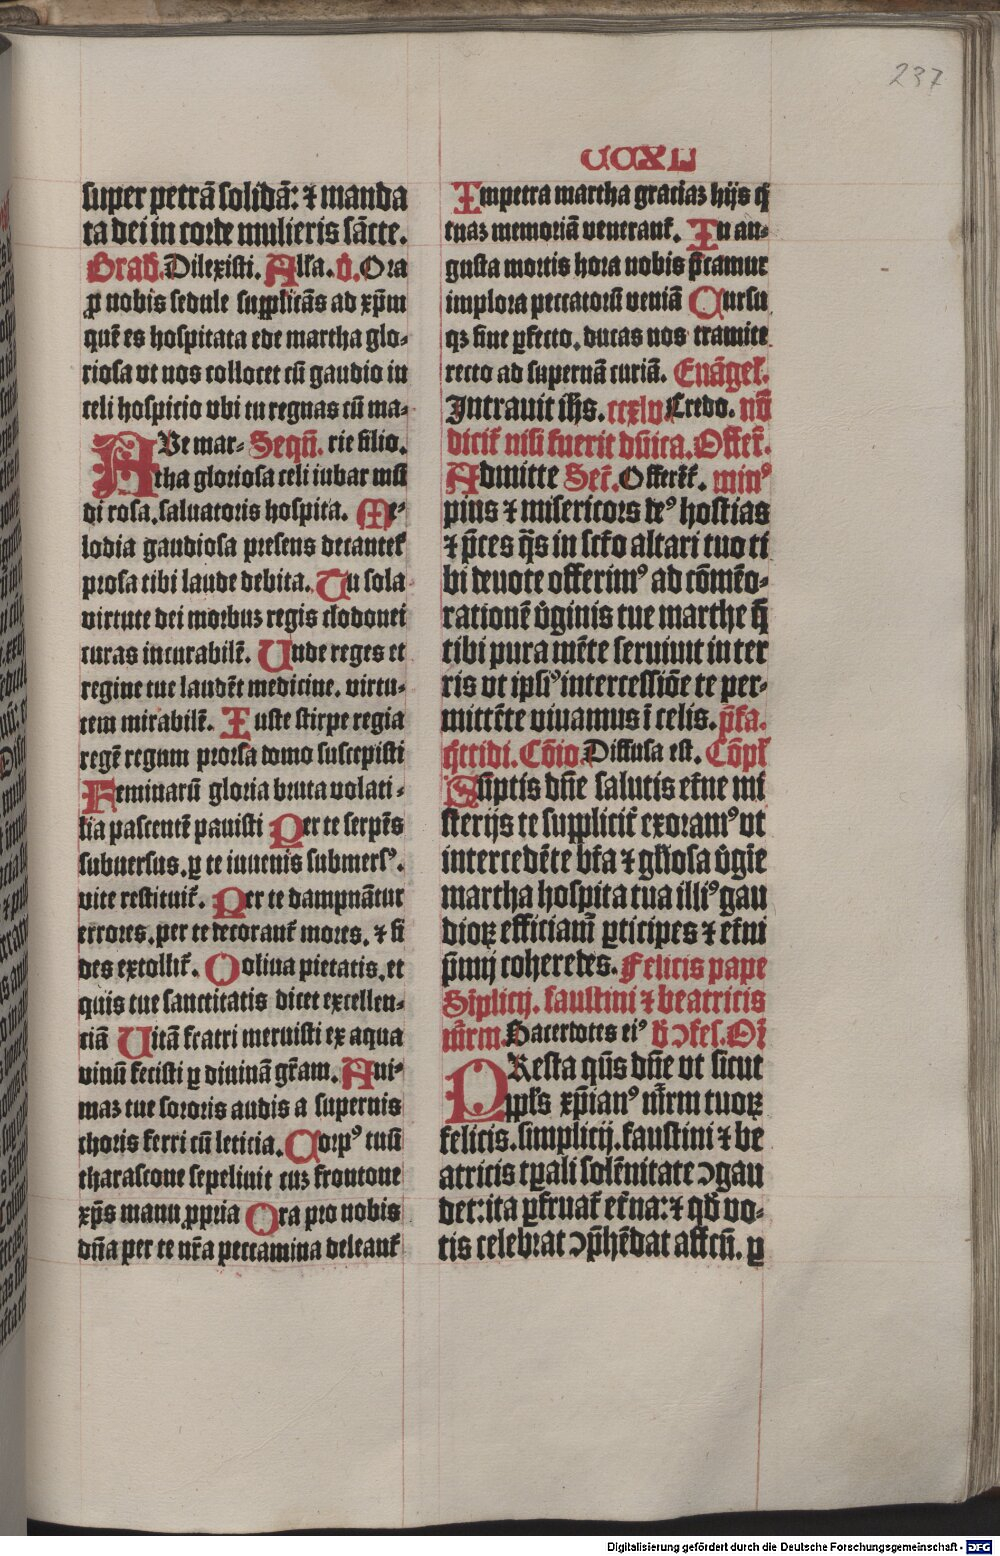 237
CCXL
super petrā solidā: ⁊ manda
ta dei in corde mulieris sācte.
Grad̄. Dilexisti. All'a. v̄. Ora
ꝓ nobis sedule supplicās ad xp̄m
quē es hospitata ede martha glo-
riosa vt nos collocet cū gaudio in
celi hospicio vbi tu regnas cū ma-
AVe mar- Sequē. rie filio.
tha gloriosa celi iubar mū
di rosa. saluatoris hospita. Me-
lodia gaudiosa presens decantet᷑
prosa tibi laude debita. Tu sola
virtute dei morbuz regis clodouei
curas incurabilē. Unde reges et
regine tue laudēt medicine. virtu-
tem mirabilē. Iuste stirpe regia
regē regum prorsa domo suscepisti
Feminarū gloria bruta volati-
lia pascentē pauisti Per te serpēs
subuersus. ꝑ te iuuenis submersꝰ.
vite restituit᷑. Per te dampnātur
errores. per te decorant᷑ mores. ⁊ fi
des extollit᷑. O oliua pietatis. et
quis tue sanctitatis dicet excellen-
tiā Uitā fratri meruisti ex aqua
vinū fecisti ꝑ diuinā gr̄am. Ani-
maz tue sororis audis a supernis
choris ferri cū leticia. Corpꝰ tuū
tharascone sepeliuit cuz frontone
xp̄s manu ꝓpria Ora pro nobis
dn̄a per te nr̄a peccamina deleant᷑
Impetra martha graciaz hijs q̄
tuaz memoriā venerant᷑. In an-
gusta mortis hora nobis p̄camur
implora peccatorū veniā Cursu
qꝫ fine ꝑfecto. ducas nos tramite
recto ad supernā curiā. Euāgel᷑.
Intrauit ih̄s. ccxlv Credo. nō
dicit᷑ nisi fuerit dn̄ica. Offer᷑.
Admitte Secr̄. Offert᷑. minꝰ
pius ⁊ misericors deꝰ hostias
⁊ p̄ces q̄s in sct̄o altari tuo ti
bi deuote offerimꝰ ad cōmēo-
rationē v̄ginis tue marthe q̄
tibi pura mēte seruiuit in ter
ris vt ipsiꝰ intercessiōe te per-
mittēte viuamus ī celis. p̄fa.
Cōio. Diffusa est. Cōpl᷑
Sūptis dn̄e salutis et̄ne mi
sterijs te supplicit᷑ exoramꝰ vt
intercedēte bt̄a ⁊ gl̄iosa v̄gīe
martha hospita tua illiꝰ gau
dioꝝ efficiam̄ ꝑticipes ⁊ et̄ni
p̄mij coheredes. Felicis pape
Siplicij. faustini ⁊ beatricis
mr̄rm. Sacerdotes eiꝰ v̄ ↄfes. Or̄
PResta qūs dn̄e vt sicut
ppl's xp̄ianꝰ mr̄rm tuoꝝ
felicis. simplicij. faustini ⁊ be
atricis tꝑali solēnitate ↄgau
det: ita ꝑfruat᷑ et̄na: ⁊ qd̄ vo-
tis celebrat ↄp̄hēdat affcū. ꝑ
Digitalisierung gefördert durch die Deutsche Forschungsgemeinschaft - DFG